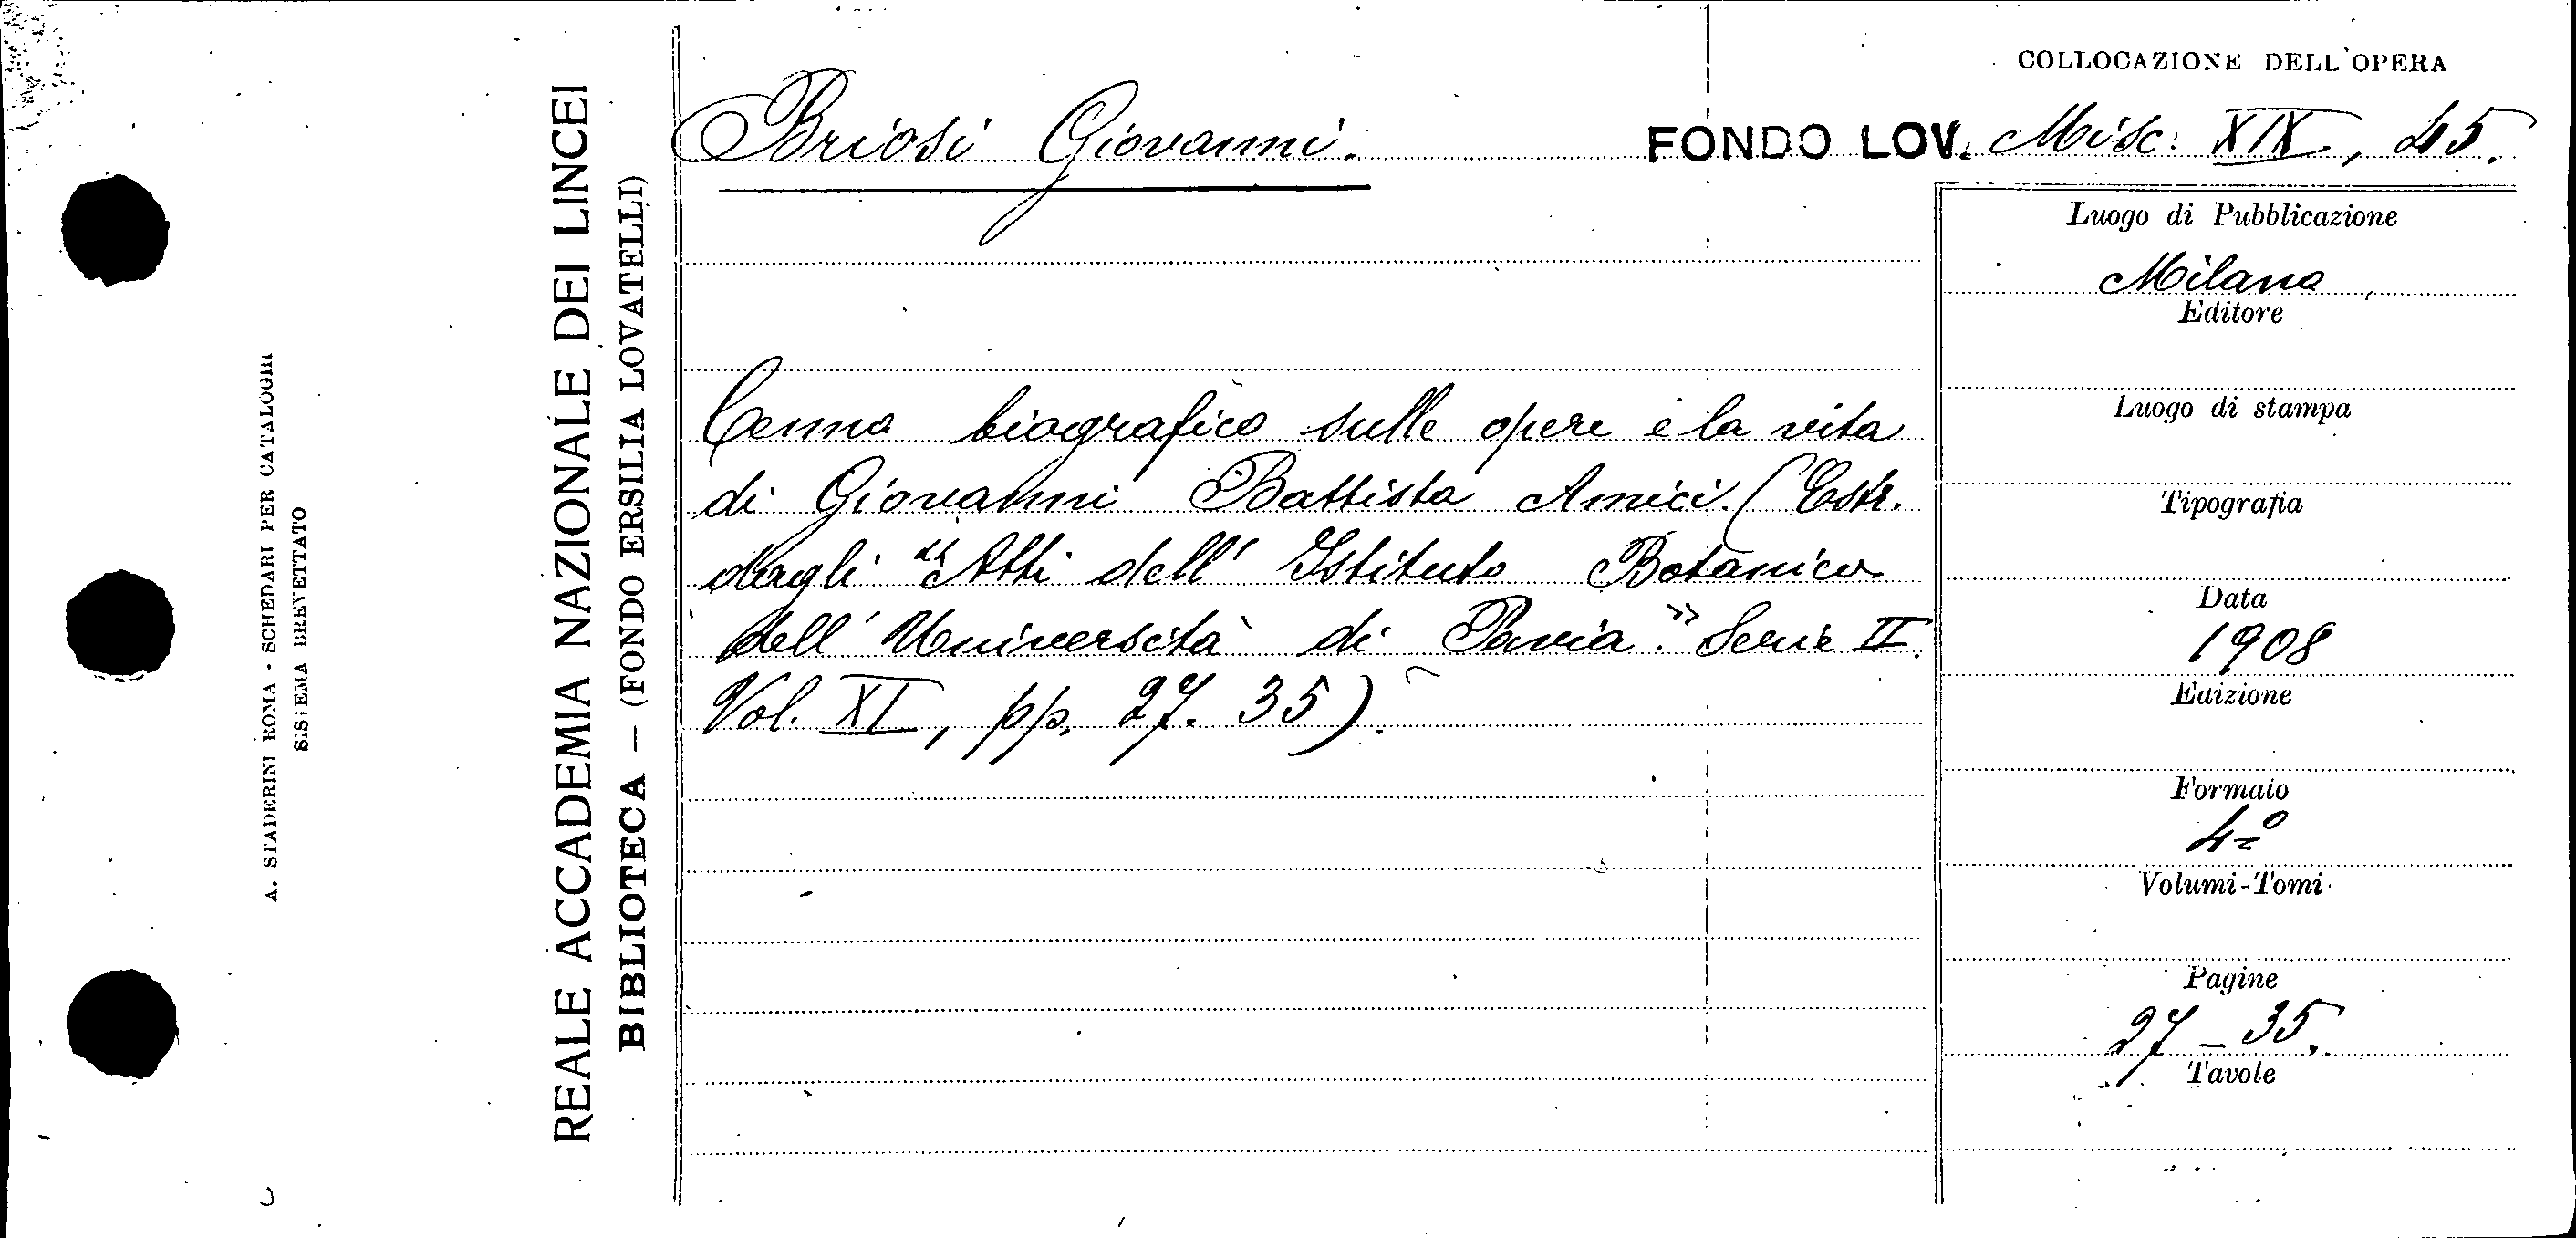 A. STADERINI ROMA - SCHEDARI PER CATALOGHI
SISTEMA BREVETTATO
REALE ACCADEMIA NAZIONALE DEI LINCEI
BIBLIOTECA — (FONDO ERSILIA LOVATELLI)
COLLOCAZIONE DELL'OPERA
Briosi Giovanni.
FONDO LOV. Misc: XIX, 45.
Cenno biografico sulle opere e la vita
di Giovanni Battista Amici. (Estr.
dagli "Atti dell' Istituto Botanico
dell' Università di Pavia." Serie II.
Vol. XI, pp. 27. 35).
Luogo di Pubblicazione
Milano
Editore
Luogo di stampa
Tipografia
Data
1908
Edizione
Formato
4º
Volumi-Tomi
Pagine
27 - 35.
Tavole